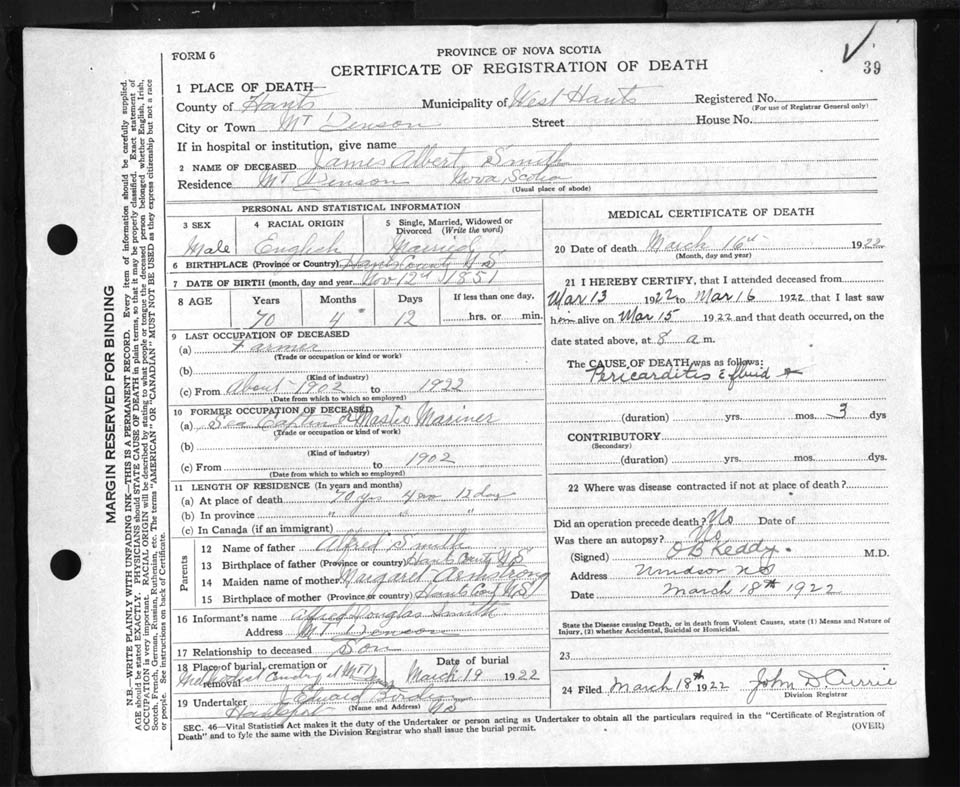 FORM 6
PROVINCE OF NOVA SCOTIA
CERTIFICATE OF REGISTRATION OF DEATH
39
1 PLACE OF DEATH—
County of Hants Municipality of West Hants Registered No.
(For use of Registrar General only)
City or Town Mt Denson Street House No.
If in hospital or institution, give name
2 NAME OF DECEASED James Albert Smith
Residence Mt Denson Nova Scotia
(Usual place of abode)
PERSONAL AND STATISTICAL INFORMATION
3 SEX 4 RACIAL ORIGIN 5 Single, Married, Widowed or Divorced (Write the word)
Male English Married
6 BIRTHPLACE (Province or Country) Hants County N S
7 DATE OF BIRTH (month, day and year) Nov 12th 1851
8 AGE Years Months Days If less than one day,
70 4 12 hrs. or min.
9 LAST OCCUPATION OF DECEASED
(a) Farmer
(Trade or occupation or kind or work)
(b)
(Kind of industry)
(c) From About 1902 to 1922
(Date from which to which so employed)
10 FORMER OCCUPATION OF DECEASED
(a) Sea Captin or Master Mariner
(Trade or occupation or kind of work)
(b)
(Kind of industry)
(c) From to 1902
(Date from which to which so employed)
11 LENGTH OF RESIDENCE (In years and months)
(a) At place of death 70 yrs 4 mo 12 day
(b) In province " " "
(c) In Canada (if an immigrant)
Parents
12 Name of father Alfred Smith
13 Birthplace of father (Province or country) Hants County N S
14 Maiden name of mother Margaret Armstrong
15 Birthplace of mother (Province or country) Hants Count N S
16 Informant's name Alfred Douglas Smith
Address Mt Denson
17 Relationship to deceased Son
18 Place of burial, cremation or removal Date of burial
Methodist at Mt Denson March 19 1922
19 Undertaker Edward Borden
(Name and Address)
Hantsport NS
MEDICAL CERTIFICATE OF DEATH
20 Date of death March 16th 1922
(Month, day and year)
21 I HEREBY CERTIFY, that I attended deceased from
Mar 13 1922 to Mar 16 1922 that I last saw
him alive on Mar 15 1922 and that death occurred, on the
date stated above, at 8 a m.
The CAUSE OF DEATH was as follows:
Pericarditis & fluid
(duration) yrs. mos. 3 dys
CONTRIBUTORY
(Secondary)
(duration) yrs. mos. dys.
22 Where was disease contracted if not at place of death?
Did an operation precede death? No Date of
Was there an autopsy? No
(Signed) O B Keddy. M.D.
Address Windsor NS
Date March 18th 1922
State the Disease causing Death, or in death from Violent Causes, state (1) Means and Nature of
Injury, (2) whether Accidental, Suicidal or Homicidal.
23
24 Filed March 18th 1922 John D Currie
Division Registrar
SEC. 46—Vital Statistics Act makes it the duty of the Undertaker or person acting as Undertaker to obtain all the particulars required in the "Certificate of Registration of
Death" and to fyle the same with the Division Registrar who shall issue the burial permit. (OVER)
MARGIN RESERVED FOR BINDING
N.B.—WRITE PLAINLY WITH UNFADING INK—THIS IS A PERMANENT RECORD. Every item of information should be carefully supplied.
AGE should be stated EXACTLY. PHYSICIANS should STATE CAUSE OF DEATH in plain terms, so that it may be properly classified. Exact statement of
OCCUPATION is very important. RACIAL ORIGIN will be described by stating to what people or tongue the deceased person belonged whether English, Irish,
Scotch, French, German, Russian, Ruthenian, etc. The terms "AMERICAN" or "CANADIAN" MUST NOT BE USED as they express citizenship but not a race
or people. See instructions on back of Certificate.